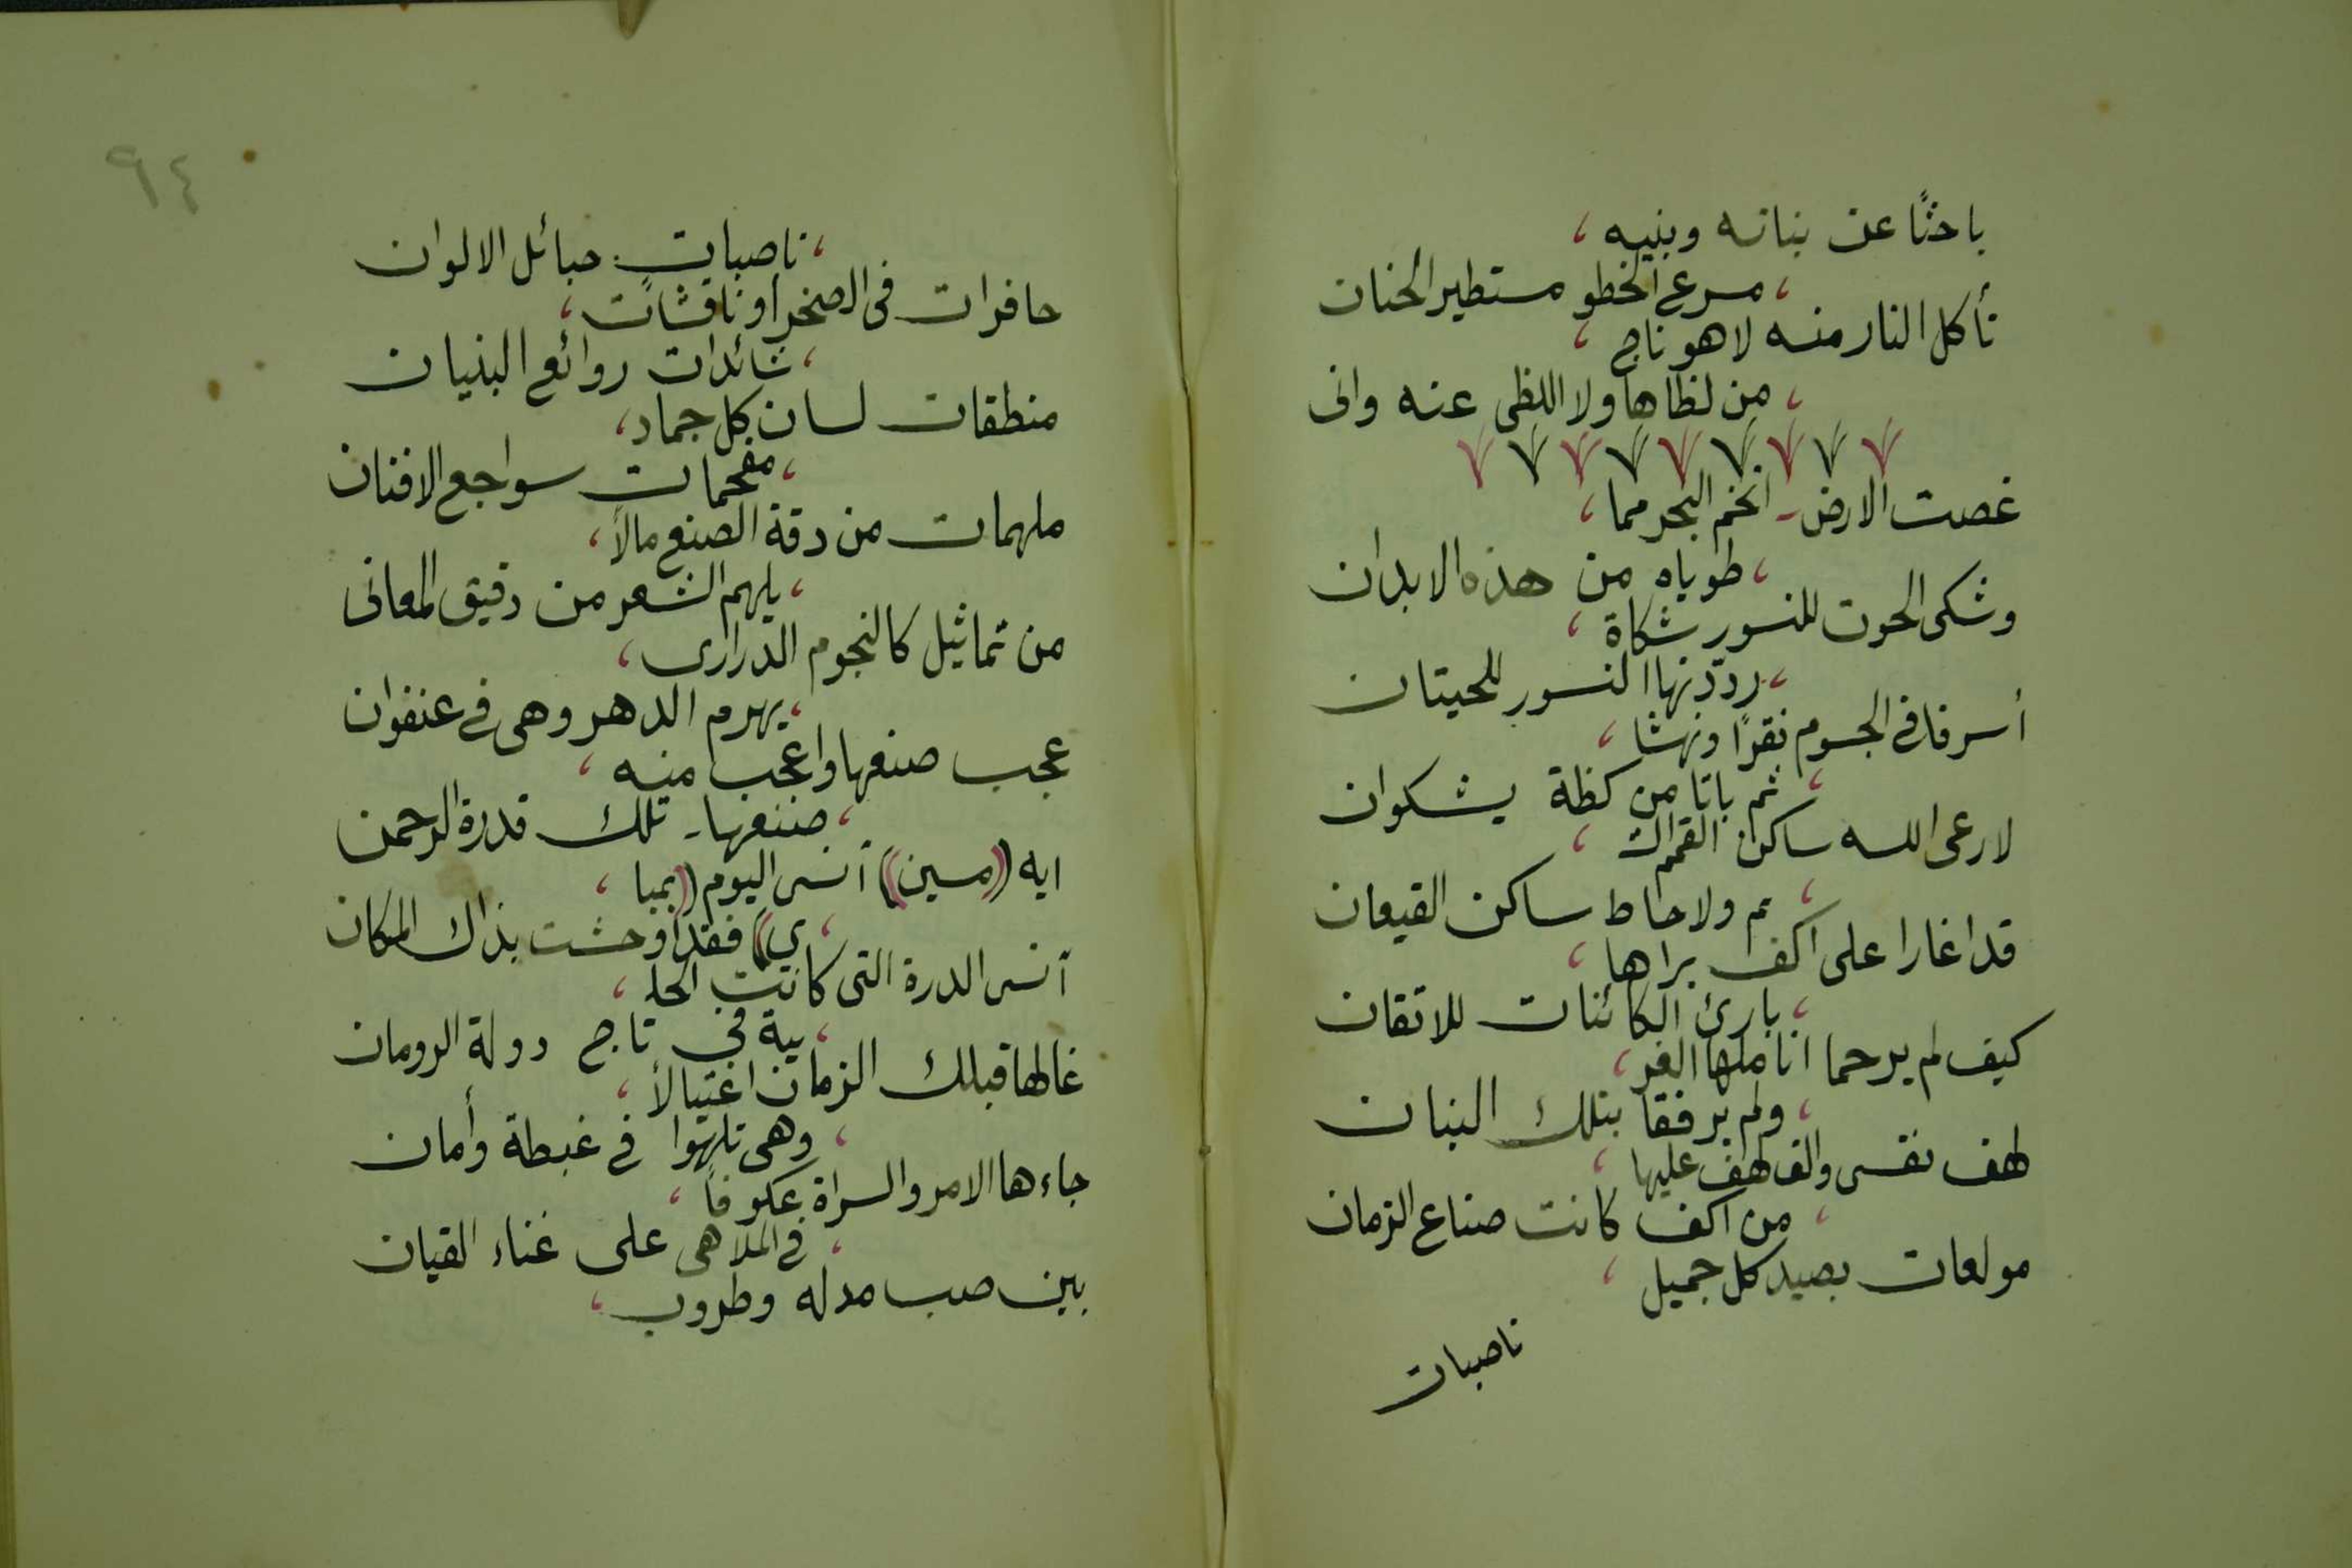 باحثًا عن بناته وبنيه ،
، مسرع الخطو مستطير الجنان
تأكل النار منه لا هو ناج ،
، من لظاها ولا اللظى عنه وانى
غصت الارض ـ اتخم البحر مما ،
، طوياه من هذه الابدان
وشكى الحوت للنسور شكاة ،
، رددتها النسور للحيتان
أسرفا فى الجسوم نقرًا ونهشا ،
، ثم باتا من كظة يشكوان
لا رعى الله ساكن القمم الشـ ،
، ـم ولا حاط ساكن القيعان
قد اغارا على اكف براها ،
، بارئ الكائنات للاتقان
كيف لم يرحما اناملها الغر ،
، ولم يرفقا بتلك البنان
لهف نفسى والف لهف عليها ،
، من اكف كانت صناع الزمان
مولعات بصيد كل جميل ،
ناصبات
٩٤
، ناصبات حبائل الالوان
حافرات فى الصخر أو ناقشات ،
، شائدات روائع البنيان
منطقات لسان كل جماد ،
، مفحمات سواجع الافنان
ملهمات من دقة الصنع مالاً ،
، يلهم الشعر من دقيق المعانى
من تماثيل كالنجوم الدرارى ،
، يهرم الدهر وهى فى عنفوان
عجب صنعها واعجب منه ،
، صنعها ـ تلك قدرة الرحمن
ايه ((مسين)) آنسى اليوم ((بمبا ،
، ى)) فقد أوحشت بذاك المكان
آنسى الدرة التى كانت الحلـ ،
، ـية فى تاج دولة الرومان
غالها قبلك الزمان اغتيالاً ،
، وهى تلهوا فى غبطة وأمان
جاءها الامر والسراة عكوفاً ،
، فى الملاهى على غناء القيان
بين صب مدله وطروب ،